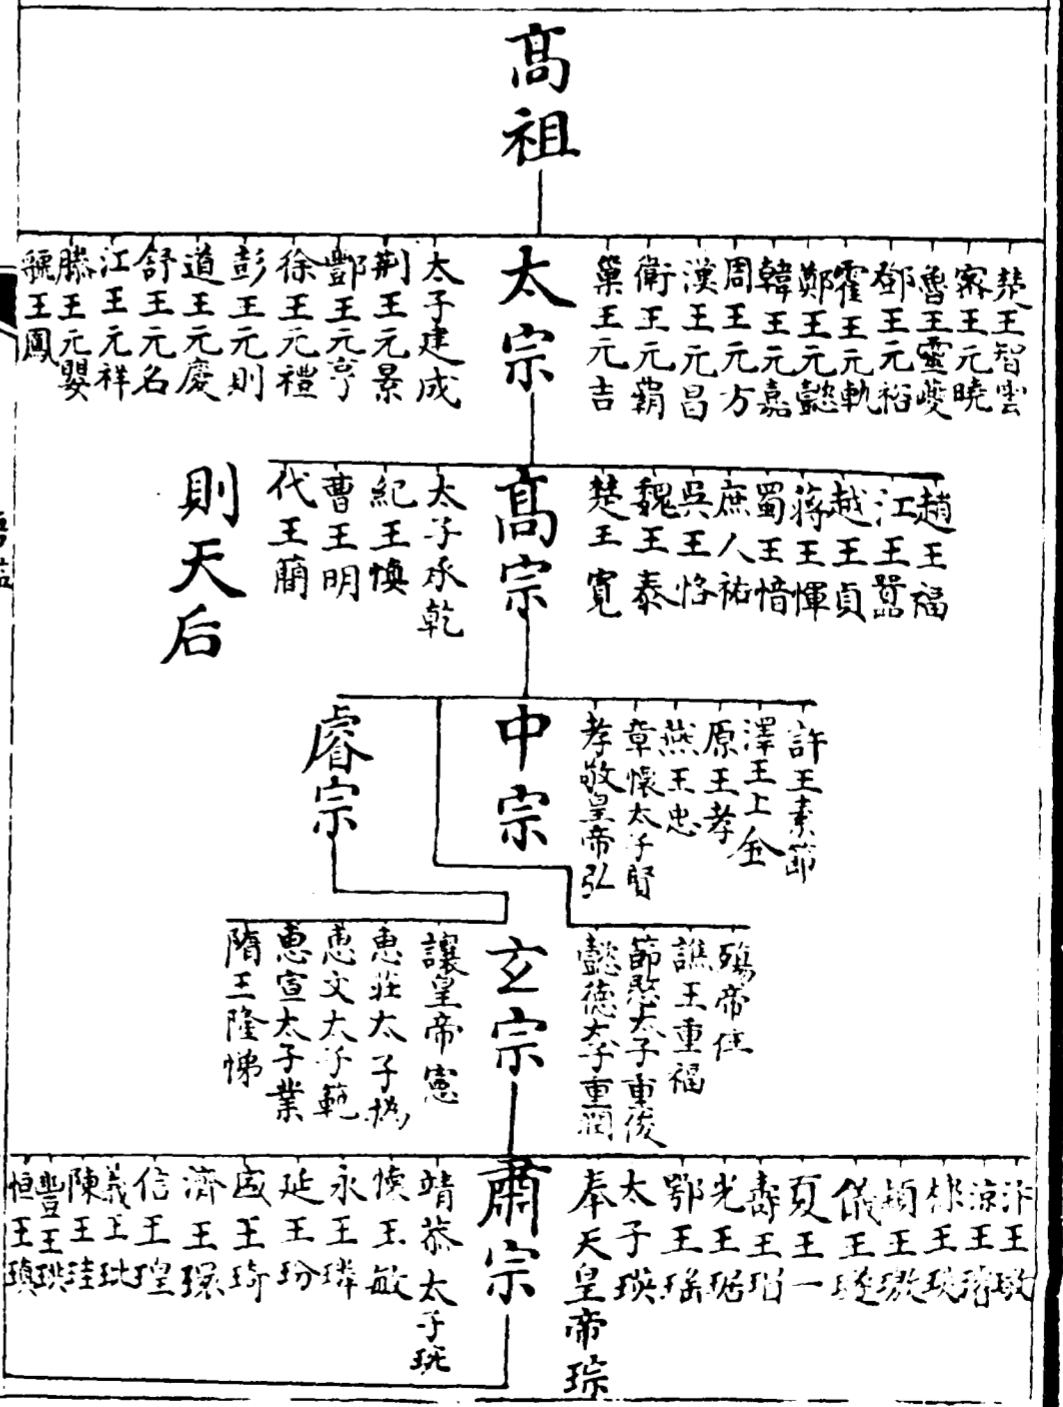 高祖
楚王智雲
密王元曉
魯王靈夔
鄧王元裕
霍王元軌
鄭王元懿
韓王元嘉
周王元方
漢王元昌
衛王元霸
巢王元吉
太宗
太子建成
荆王元景
酆王元亨
徐王元禮
彭王元則
道王元慶
舒王元名
江王元祥
滕王元嬰
虢王鳳
趙王福
江王囂
越王貞
蔣王惲
蜀王愔
庶人祐
吳王恪
魏王泰
楚王寬
高宗
太子承乾
紀王慎
曹王明
代王蕑
則天后
許王素節
澤王上金
原王孝
燕王忠
章懷太子賢
孝敬皇帝弘
中宗
睿宗
殤帝
譙王重福
節愍太子重俊
懿德太子重潤
玄宗
讓皇帝憲
惠莊太子撝
惠文太子範
惠宣太子業
隋王隆悌
汴王璥
涼王璿
王
王璬
儀王璲
夏王一
壽王瑁
光王琚
鄂王瑤
太子瑛
奉天皇帝琮
肅宗
靖恭太子琬
懷王敏
永王璘
延王玢
王琦
濟王環
信王瑝
義王玭
陳王珪
豐王珙
恒王瑱